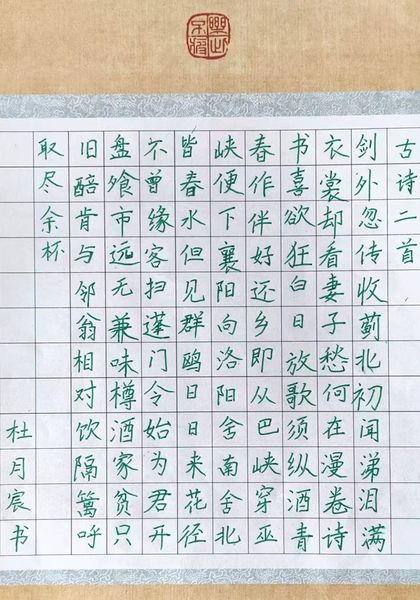 古诗二首
剑外忽传收蓟北初闻涕泪满
衣裳却看妻子愁何在漫卷诗
书喜欲狂白日放歌须纵酒青
春作伴好还乡即从巴峡穿巫
峡便下襄阳向洛阳舍南舍北
皆春水但见群鸥日日来花径
不曾缘客扫蓬门今始为君开
盘飧市远无兼味樽酒家贫只
旧醅肯与邻翁相对饮隔篱呼
取尽余杯
杜月宸书